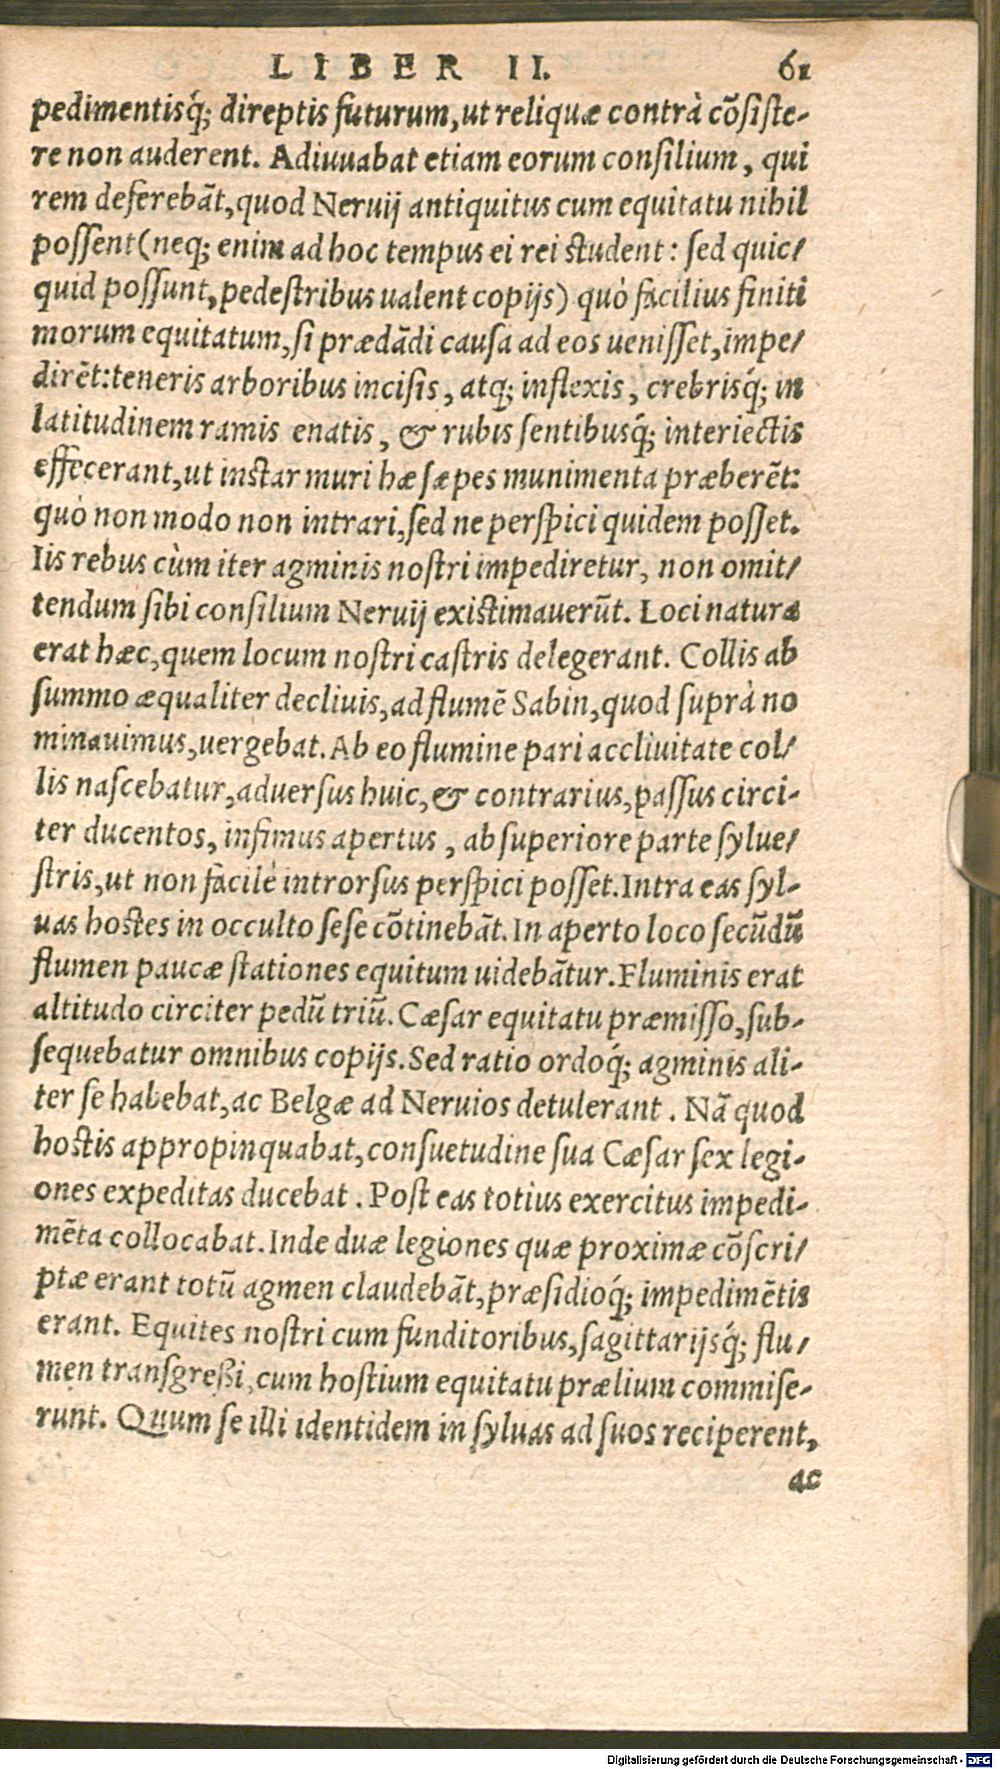 LIBER II. 61
pedimentisq́; direptis futurum, ut reliquæ contrà cõsiste-
re non auderent. Adiuuabat etiam eorum consilium, qui
rem deferebãt, quod Neruij antiquitus cum equitatu nihil
possent (neq; enim ad hoc tempus ei rei student: sed quic/
quid possunt, pedestribus ualent copijs) quò facilius finiti
morum equitatum, si prædãdi causa ad eos uenisset, impe/
dirẽt: teneris arboribus incisis, atq; inflexis, crebrisq́; in
latitudinem ramis enatis, & rubis sentibusq́; interiectis
effecerant, ut instar muri hæ sæpes munimenta præberẽt:
quò non modo non intrari, sed ne perspici quidem posset.
Iis rebus cùm iter agminis nostri impediretur, non omit/
tendum sibi consilium Neruij existimauerũt. Loci natura
erat hæc, quem locum nostri castris delegerant. Collis ab
summo æqualiter decliuis, ad flumẽ Sabin, quod suprà no
minauimus, uergebat. Ab eo flumine pari accliuitate col/
lis nascebatur, aduersus huic, & contrarius, passus circi-
ter ducentos, infimus apertus, ab superiore parte sylue/
stris, ut non facilè introrsus perspici posset. Intra eas syl-
uas hostes in occulto sese cõtinebãt. In aperto loco secũdũ
flumen paucæ stationes equitum uidebãtur. Fluminis erat
altitudo circiter pedũ triũ. Cæsar equitatu præmisso, sub-
sequebatur omnibus copijs. Sed ratio ordoq́; agminis ali-
ter se habebat, ac Belgæ ad Neruios detulerant. Nã quod
hostis appropinquabat, consuetudine sua Cæsar sex legi-
ones expeditas ducebat. Post eas totius exercitus impedi-
mẽta collocabat. Inde duæ legiones quæ proximæ cõscri/
ptæ erant totũ agmen claudebãt, præsidioq́; impedimẽtis
erant. Equites nostri cum funditoribus, sagittarijsq́; flu/
men transgreßi, cum hostium equitatu prælium commise-
runt. Quum se illi identidem in syluas ad suos reciperent,
ac
Digitalisierung gefördert durch die Deutsche Forschungsgemeinschaft - DFG